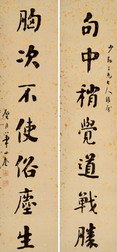 句中稍覺道戰勝
胸次不使俗塵生